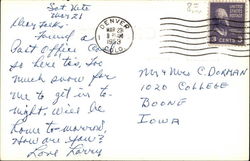 Sat Nite
Mar 21
Dear Folks.
Found a
Post office
so here tis. Too
much snow for
me to get in to-
night. Will be
home to-morrow.
How are you?
Love Larry
DENVER
COLO.
MAR 22
3 CENTS 3
Mr & Mrs C. DORMAN
1020 COLLEGE
BOONE
IOWA